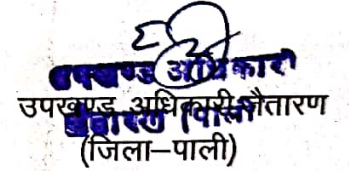 उपखण्ड अधिकारी
उपखण्ड अधिकारी जैतारण
जैतारण (पाली)
(जिला–पाली)